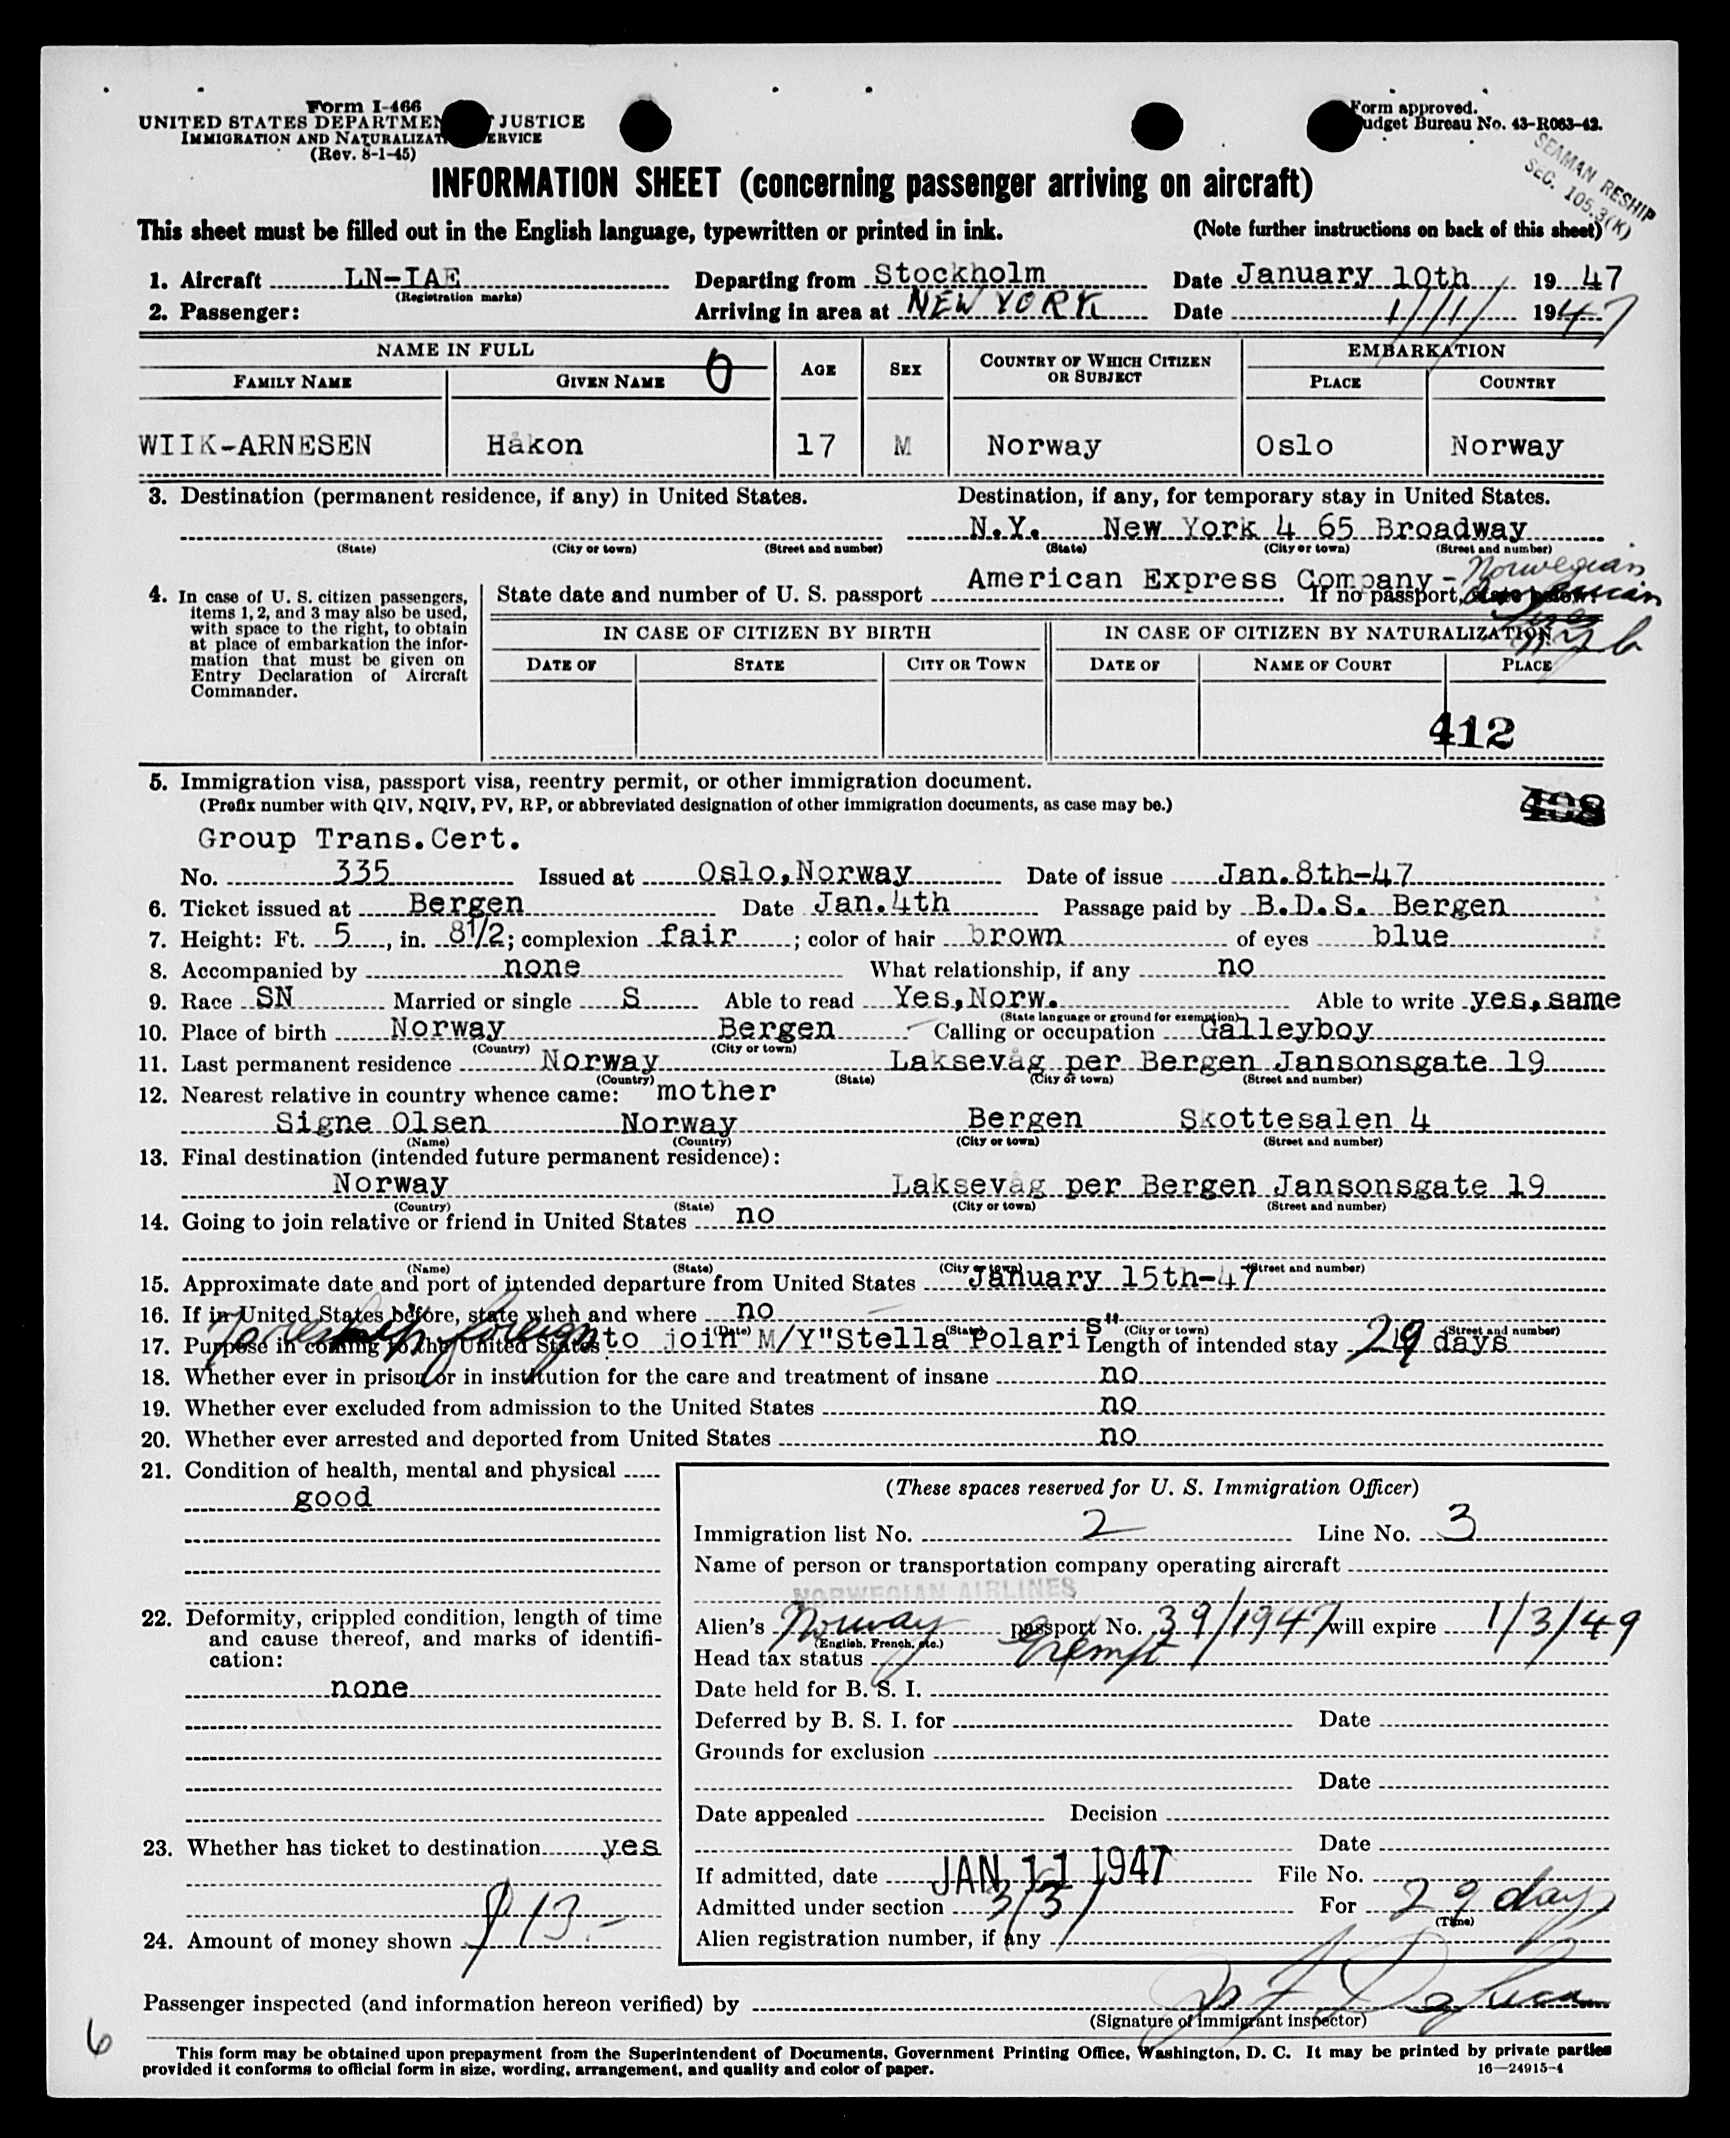 Form I-466
UNITED STATES DEPARTMENT JUSTICE
IMMIGRATION AND NATURALIZATION SERVICE
(Rev. 8-1-45)
Form approved.
Budget Bureau No. 43-R063-42.
SEAMAN RESHIP
SEC. 105.3(K)
INFORMATION SHEET (concerning passenger arriving on aircraft)
This sheet must be filled out in the English language, typewritten or printed in ink. (Note further instructions on back of this sheet)
1. Aircraft LN-IAE Departing from Stockholm Date January 10th 1947
(Registration marks)
2. Passenger: Arriving in area at NEW YORK Date 1/11/ 1947
NAME IN FULL 0 AGE SEX COUNTRY OF WHICH CITIZEN OR SUBJECT EMBARKATION
FAMILY NAME GIVEN NAME PLACE COUNTRY
WIIK-ARNESEN Håkon 17 M Norway Oslo Norway
3. Destination (permanent residence, if any) in United States. Destination, if any, for temporary stay in United States.
N.Y. New York 4 65 Broadway
(State) (City or town) (Street and number) (State) (City or town) (Street and number)
American Express Company - Norwegian
4. In case of U. S. citizen passengers, items 1, 2, and 3 may also be used, with space to the right, to obtain at place of embarkation the information that must be given on Entry Declaration of Aircraft Commander.
State date and number of U. S. passport If no passport,
IN CASE OF CITIZEN BY BIRTH IN CASE OF CITIZEN BY NATURALIZATION
DATE OF STATE CITY OR TOWN DATE OF NAME OF COURT PLACE
412
5. Immigration visa, passport visa, reentry permit, or other immigration document.
(Prefix number with QIV, NQIV, PV, RP, or abbreviated designation of other immigration documents, as case may be.)
408
Group Trans.Cert.
No. 335 Issued at Oslo,Norway Date of issue Jan.8th-47
6. Ticket issued at Bergen Date Jan.4th Passage paid by B.D.S. Bergen
7. Height: Ft. 5, in. 81/2; complexion fair; color of hair brown of eyes blue
8. Accompanied by none What relationship, if any no
9. Race SN Married or single S Able to read Yes,Norw. Able to write yes,same
(State language or ground for exemption)
10. Place of birth Norway Bergen Calling or occupation Galleyboy
(Country) (City or town)
11. Last permanent residence Norway Laksevåg per Bergen Jansonsgate 19
(Country) (State) (City or town) (Street and number)
12. Nearest relative in country whence came: mother
Signe Olsen Norway Bergen Skottesalen 4
(Name) (Country) (City or town) (Street and number)
13. Final destination (intended future permanent residence):
Norway Laksevåg per Bergen Jansonsgate 19
(Country) (State) (City or town) (Street and number)
14. Going to join relative or friend in United States no
(Name) (State) (City or town) (Street and number)
15. Approximate date and port of intended departure from United States January 15th-47
16. If in United States before, state when and where no
(Date) (State) (City or town) (Street and number)
17. Purpose in coming to the United States to join M/Y"Stella Polaris" Length of intended stay 29 days
To reship foreign
18. Whether ever in prison or in institution for the care and treatment of insane no
19. Whether ever excluded from admission to the United States no
20. Whether ever arrested and deported from United States no
21. Condition of health, mental and physical
good
22. Deformity, crippled condition, length of time and cause thereof, and marks of identification:
none
23. Whether has ticket to destination yes
24. Amount of money shown $13.-
(These spaces reserved for U. S. Immigration Officer)
Immigration list No. 2 Line No. 3
Name of person or transportation company operating aircraft
NORWEGIAN AIRLINES
Alien's Norway passport No. 39/1947 will expire 1/3/49
(English, French, etc.)
Head tax status Exempt
Date held for B. S. I.
Deferred by B. S. I. for Date
Grounds for exclusion
Date
Date appealed Decision
Date
If admitted, date JAN 11 1947 File No.
Admitted under section 3/3/ For 29 days
(Time)
Alien registration number, if any
Passenger inspected (and information hereon verified) by
(Signature of immigrant inspector)
6
This form may be obtained upon prepayment from the Superintendent of Documents, Government Printing Office, Washington, D. C. It may be printed by private parties
provided it conforms to official form in size, wording, arrangement, and quality and color of paper. 16—24915-4